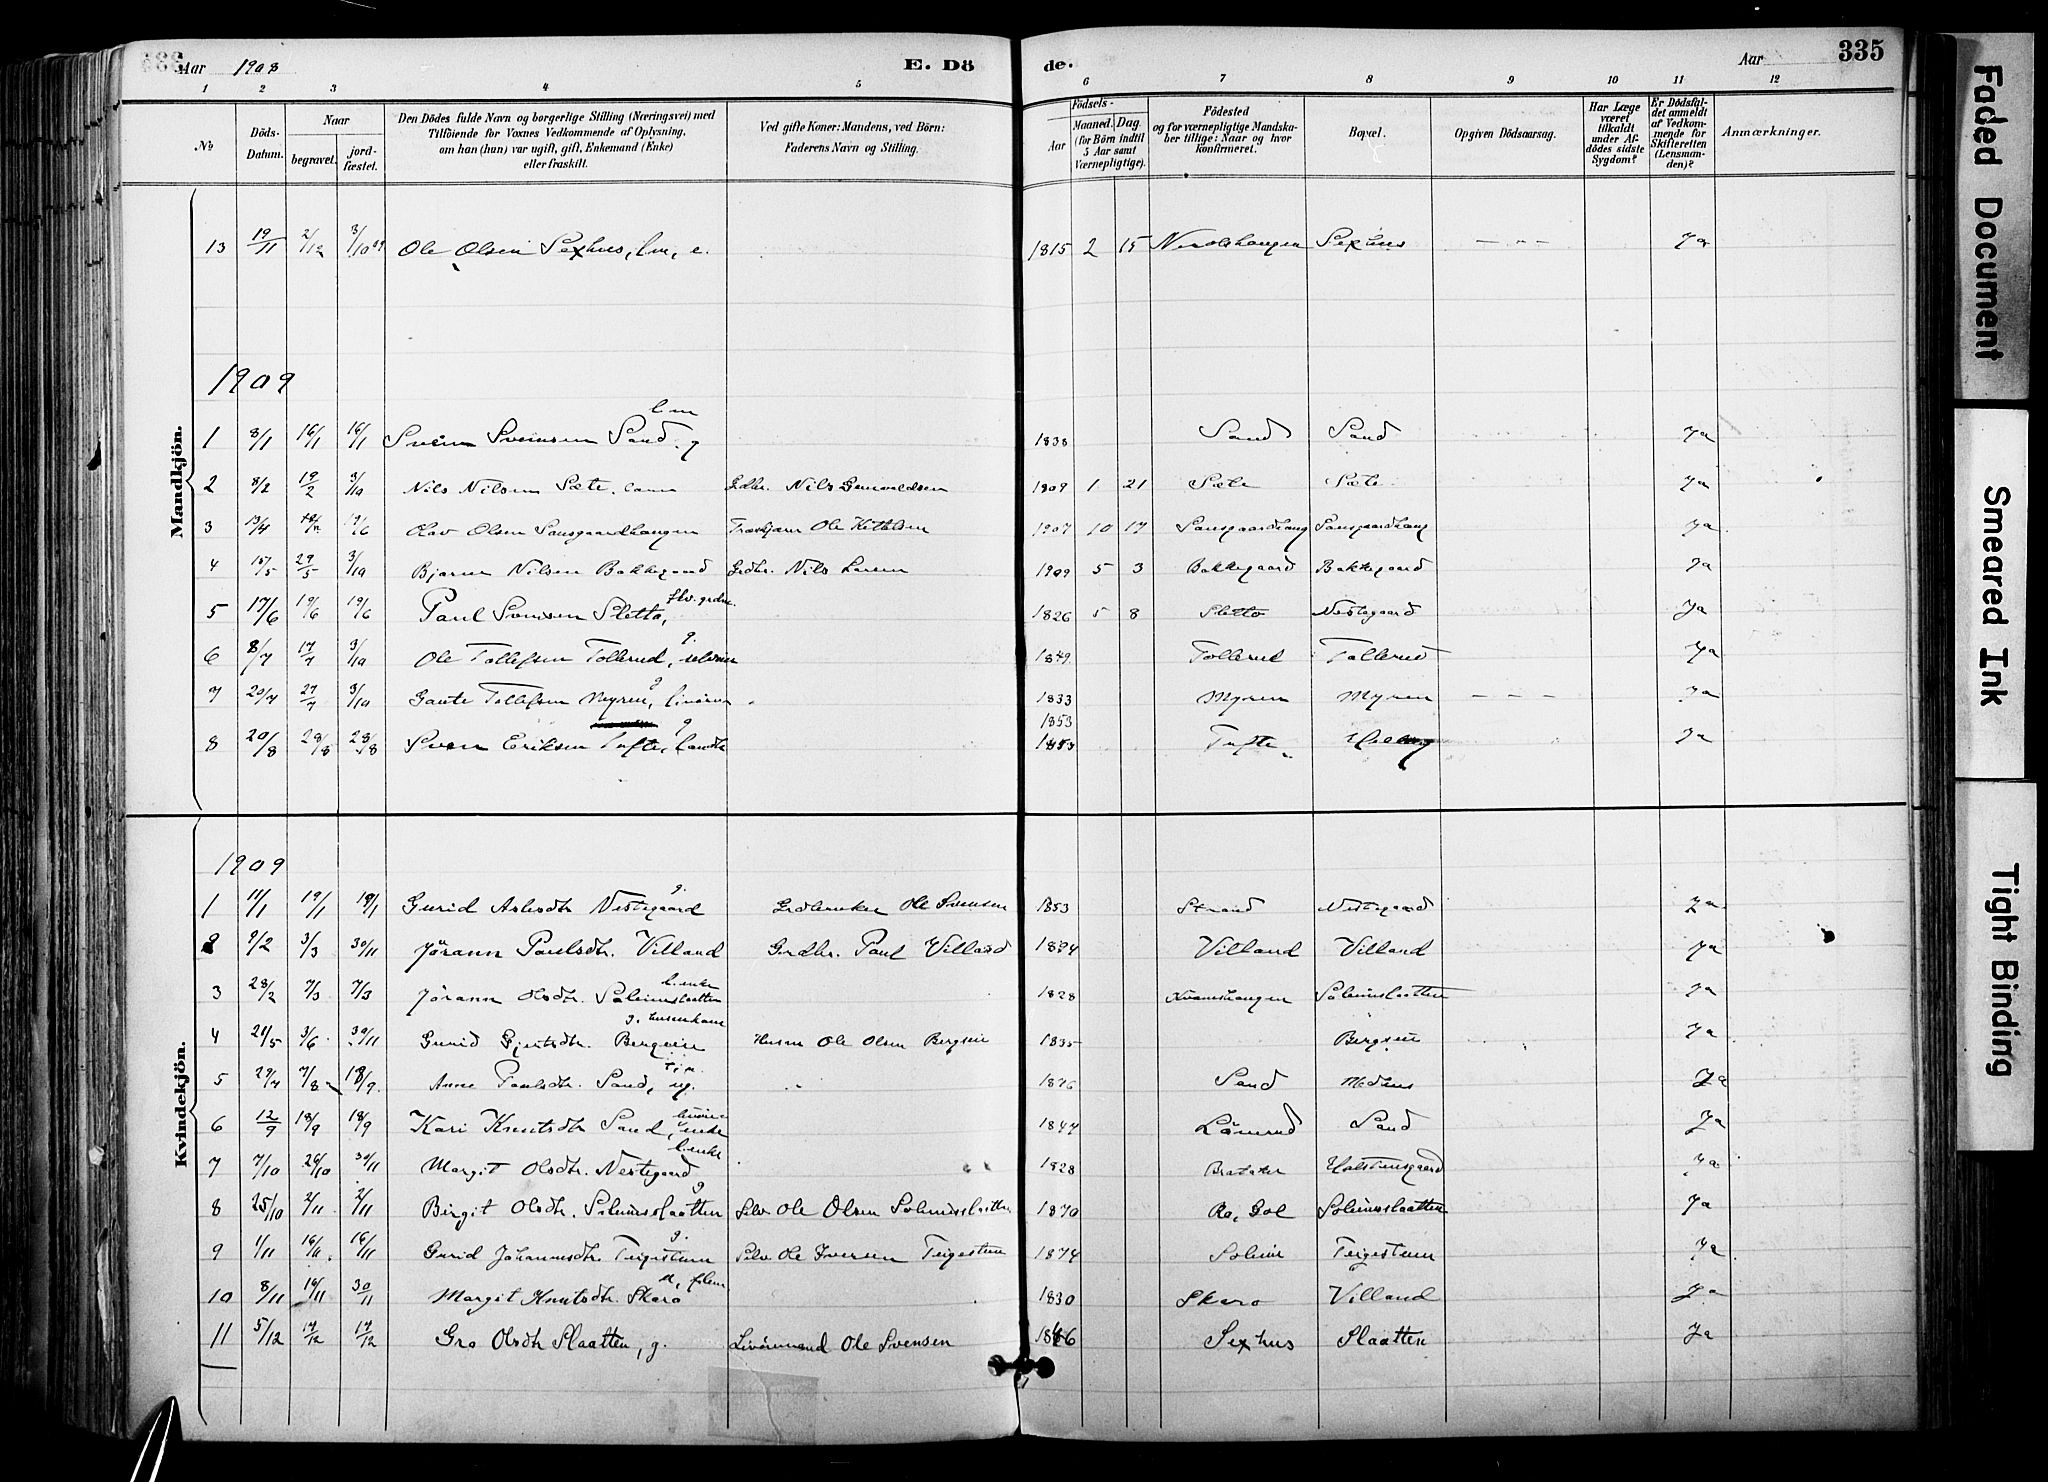 Aar 1908 E. Dö de. Aar 335
1 2 3 4 5 6 7 8 9 10 11 12
No Döds-Datum. Naar begravet. jordfæstet. Den Dödes fulde Navn og borgerlige Stilling (Næringsvei) med Tilföiende for Voxnes Vedkommende af Oplysning, om han (hun) var ugift, gift, Enkemand (Enke) eller fraskilt. Ved gifte Koner: Mandens, ved Börn: Faderens Navn og Stilling. Födsels- Aar Maaned. Dag (for Börn indtil 5 Aar samt Værnepligtige). Födested og for værnepligtige Mandskaber tillige: Naar og hvor konfirmeret. Bopæl. Opgiven Dödsaarsag. Har Læge været tilkaldt under Afdödes sidste Sygdom? Er Dödsfaldet anmeldt af Vedkommende for Skifteretten (Lensmanden)? Anmærkninger.
Mandkjön.
13 19/11 2/12 3/10 09 Ole Olsen Sexhus, lm, e. 1815 2 15 Nerolshaugen Sexhus — — — Ja
1909
1 8/1 16/1 16/1 Svein Sveinsen Sand, lm g 1838 Sand Sand Ja
2 8/2 19/2 3/10 Nils Nilsen Sæte Grdbr. Nils Gunvaldsen 1909 1 21 Sæte Sæte Ja
3 13/4 19/6 Olav Olsen Sansgaardhaugen Ole Ketilsen 1907 10 17 Sansgaardhaug Sansgaardhaug Ja
4 15/5 29/5 3/10 Bjarne Nilsen Bakkegaard Grdbr. Nils Larsen 1909 5 3 Bakkegaard Bakkegaard Ja
5 17/6 19/6 19/6 Paul Svensen Sletto, 1826 5 8 Sletto Nestegaard Ja
6 8/7 17/7 3/10 Ole Tollefsen Tollerud, g. selveier 1849 Tollerud Tollerud Ja
7 20/7 27/7 3/10 Gaute Tollefsen Myren, g 1833 Myren Myren — — — Ja
8 20/8 28/8 28/8 Sven Eriksen Tufte, g 1853 1853 Tufte Ja
Kvindekjön.
1909
1 11/1 19/1 19/1 Gurid Aslesdtr Nestegaard g. Grdbruker Ole Svensen 1853 Strand Nestegaard Ja
2 9/2 3/3 30/11 Jörann Paulsdtr. Villand Grdbr. Paul Villand 1894 Villand Villand Ja
3 28/2 7/3 7/3 Jörann Olsdtr. Solemslaatten l. enke 1828 Kvamshaugen Solemslaatten Ja
4 21/5 3/6 30/11 Gurid Gjertsdtr. Bergseie g. huskone Husm Ole Olsen Bergseie 1835 Bergseie Ja
5 29/7 7/8 18/9 Anne Paulsdtr. Sand, ug. 1876 Sand Medhus Ja
6 12/9 18/9 18/9 Kari Knutsdtr Sand, enke 1847 Lömrud Sand Ja
7 7/10 26/10 30/11 Margit Olsdtr. Nestegaard l. enke 1828 Brataker Holstensgaard Ja
8 25/10 2/11 2/11 Birgit Olsdtr. Solemsslaatten g Selv Ole Olsen Solemsslaatten 1870 Ro, Gol Solemsslaatten Ja
9 1/11 16/11 16/11 Gurid Johannesdtr. Teigestuen g. Selv Ole Iversen Teigestuen 1874 Solem Teigestuen Ja
10 8/11 16/11 30/11 Margit Knutsdtr. Skaro 1830 Skaro Villand Ja
11 5/12 17/12 17/12 Gro Olsdtr Slaatten, g. Livörmand Ole Svensen 1846 Sexhus Slaatten Ja
Faded Document
Smeared Ink
Tight Binding